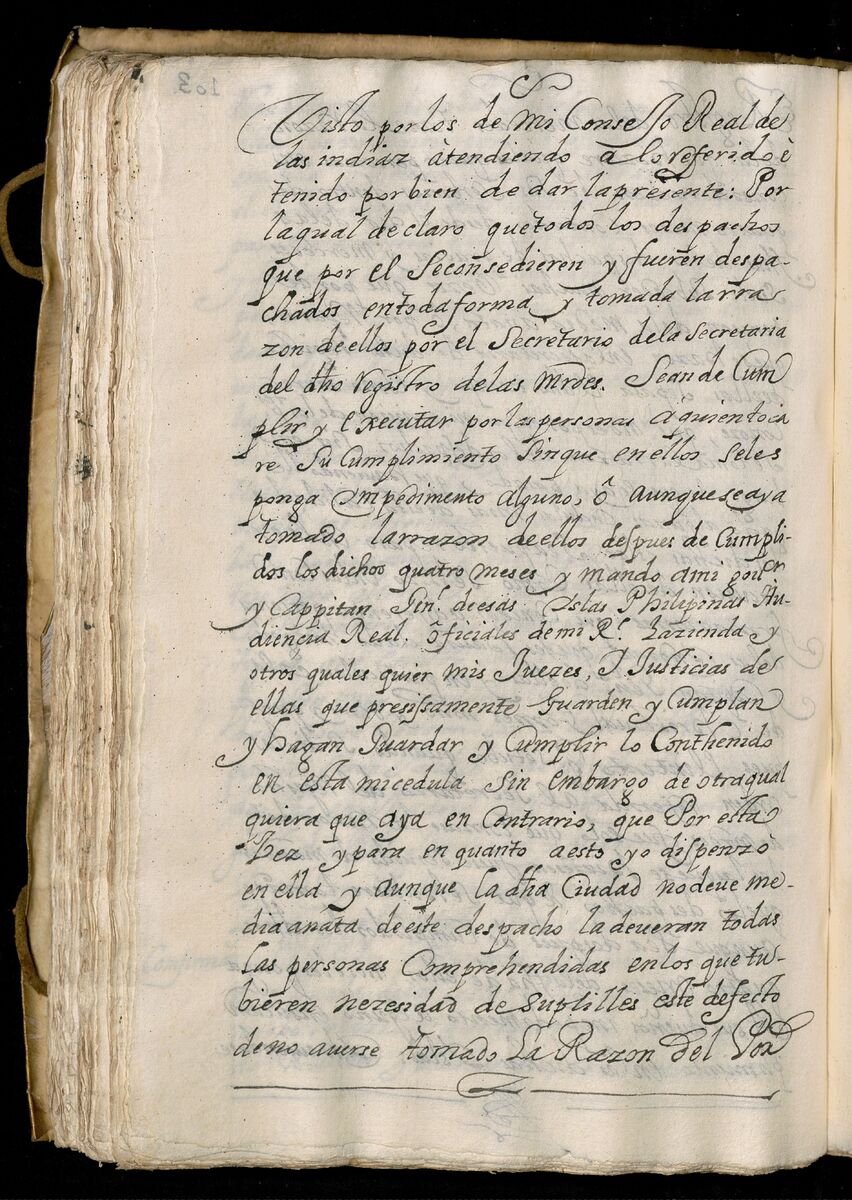 Visto por los de mi Consejo Real de
las indiaz àtendiendo a lo referido è
tenido por bien de dar la presente: Por
la qual declaro que todos los despachos
que por el Seconsedieren y fueren despa-
chados en toda forma y tomada la rra
zon de ellos por el Secretario de la Secretaria
del dho registro de las Mrdes. Sean de Cum
plir y executar por las personas a quien toca
re Su Cumplimiento Sin que en ellos se les
ponga Ympedimento alguno, ô aunque se aya
tomado la rrazon de ellos despues de Cumpli-
dos los dichos quatro meses y mando a mi gouor
y Cappitan Genl. de esas Yslas Philipinas Au-
diençia Real, ôficiales de mi Rl. hazienda y
otros quales quier mis Juezes, Y Justicias de
ellas que presissamente Guarden y Cumplan
y hagan Guardar y Cumplir lo Conthenido
en esta mi cedula sin embargo de otra qual
quiera que aya en Contrario, que Por esta
Vez y para en quanto a esto yo dispenzò
en ella y aunque la dha Ciudad no deve me-
dia anata de este despacho la deveran todas
las personas Comprehendidas en los que tu-
bieren nezesidad de suplilles este defecto
de no averse tomado La Razon del Por